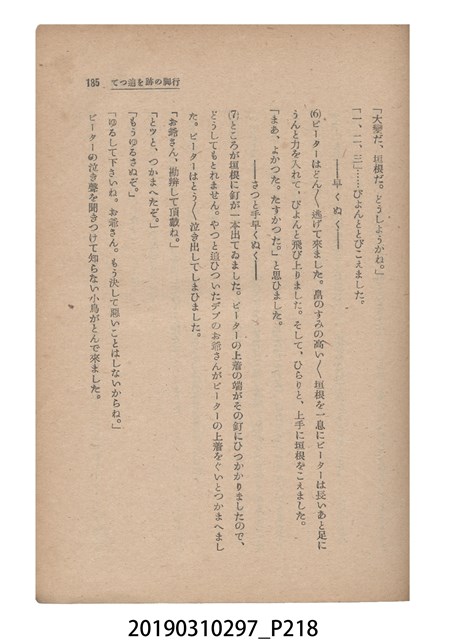 185　てつ追を跡の脚行
「大變だ、垣根だ。どうしようかね。」
「一、二、三」……ぴよんととびこえました。
――早くぬく――
(6)ピーターはどん〱逃げて來ました。畠のすみの高い〱垣根を一息にピーターは長いあと足に
うんと力を入れて、ぴよんと飛び上りました。そして、ひらりと、上手に垣根をこえました。
「まあ、よかつた。たすかつた。」と思ひました。
――さつと手早くぬく――
(7)ところが垣根に釘が一本出てゐました。ピーターの上着の端がその釘にひつかかりましたので、
どうしてもとれません。やつと追ひついたデブのお爺さんがピーターの上着をぐいとつかまへまし
た。ピーターはとう〱泣き出してしまひました。
「お爺さん、勘辨して頂戴ね。」
「とツと、つかまへたぞ。」
「もうゆるさぬぞ。」
「ゆるして下さいね。お爺さん。もう決して惡いことはしないからね。」
ピーターの泣き聲を聞きつけて知らない小鳥がとんで來ました。
20190310297_P218